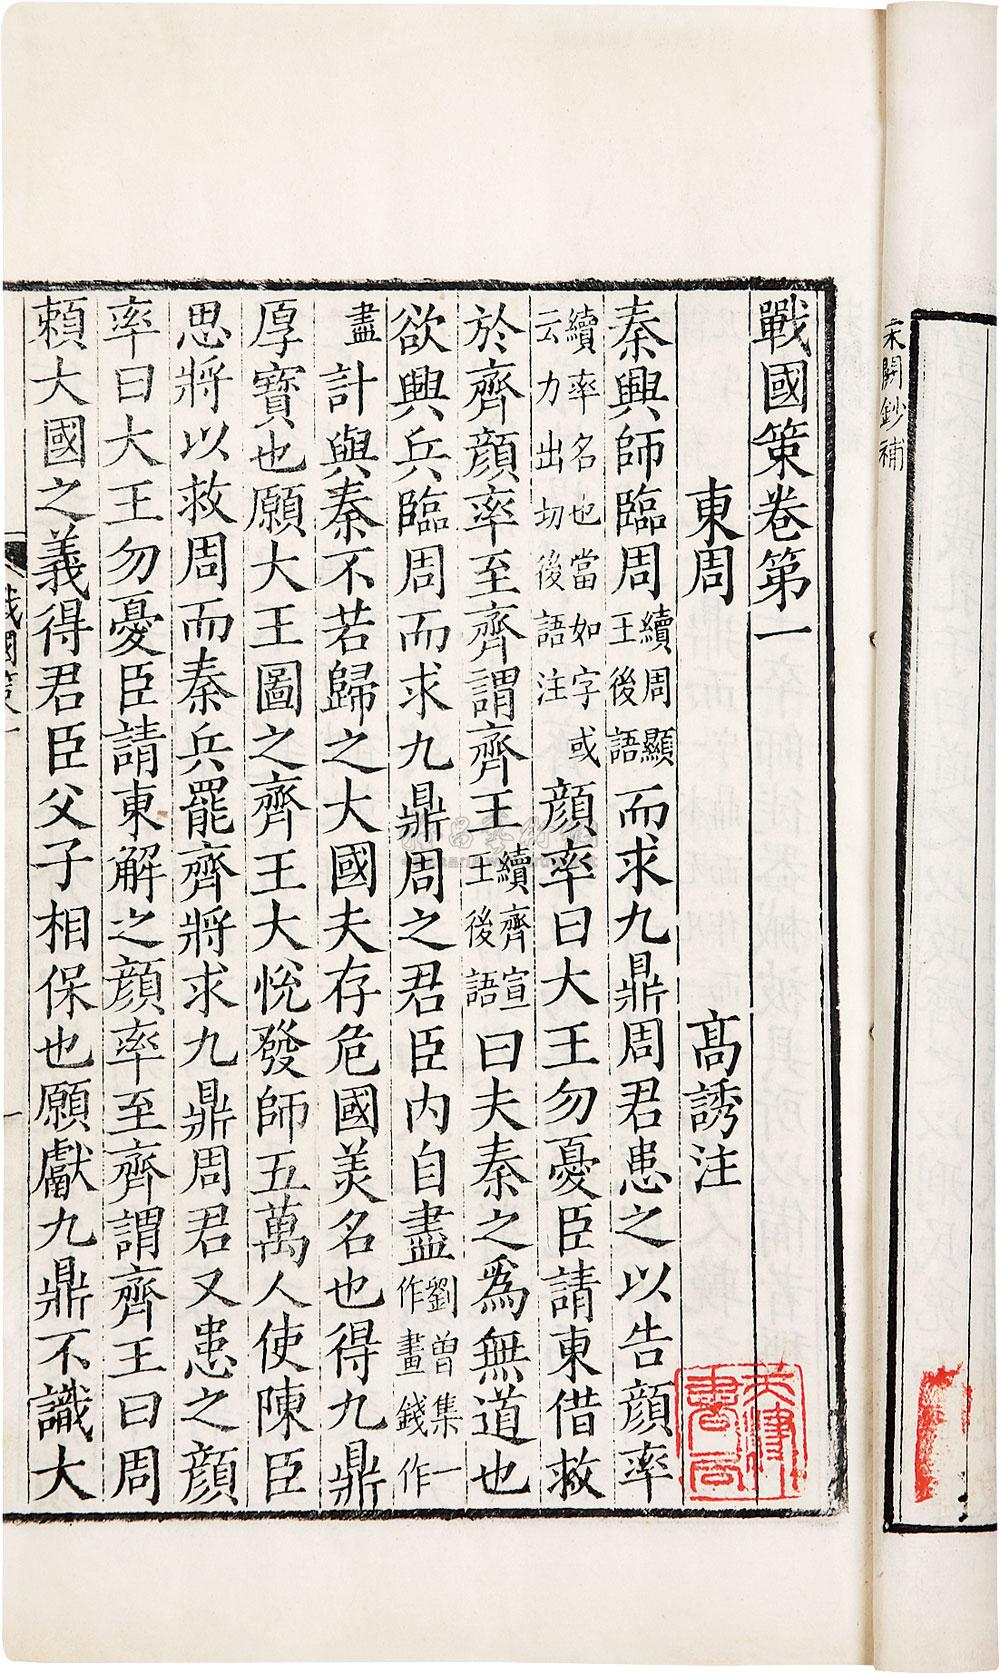 宋闕鈔補
戰國策卷第一
東周 高誘注
秦興師臨周續周顯王後語而求九鼎周君患之以告顔率
續率名也當如字或云力出切後語注顔率曰大王勿憂臣請東借救
於齊顔率至齊謂齊王續齊宣王後語曰夫秦之爲無道也
欲興兵臨周而求九鼎周之君臣内自盡劉曾集一作畫錢作
盡計與秦不若歸之大國夫存危國美名也得九鼎
厚寶也願大王圖之齊王大悅發師五萬人使陳臣
思將以救周而秦兵罷齊將求九鼎周君又患之顔
率曰大王勿憂臣請東解之顔率至齊謂齊王曰周
賴大國之義得君臣父子相保也願獻九鼎不識大
天津書局